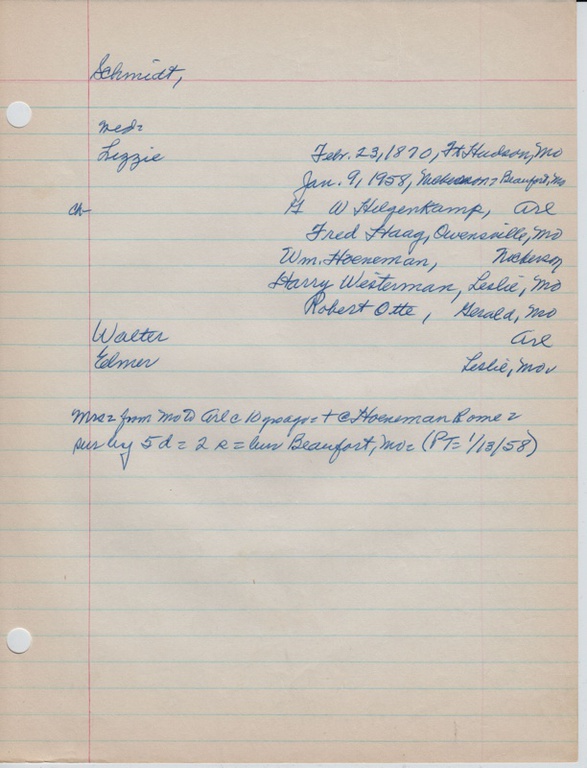 Schmidt,
med=
Lizzie Febr. 23, 1870, Ft Hudson, Mo
Jan. 9, 1958, Nickerson = Beaufort, Mo
ch- H W Hilgenkamp, Arl
Fred Haag, Owensville, Mo
Wm. Hoeneman, Nickerson
Harry Westerman, Leslie, Mo
Robert Otte, Gerald, Mo
Walter Arl
Elmer Leslie, Mo
Mrs = from Mo to Arl c 10 yr ago = + c Hoeneman home =
sur by 5 d = 2 s = bur Beaufort, Mo = (PT= 1/13/58)